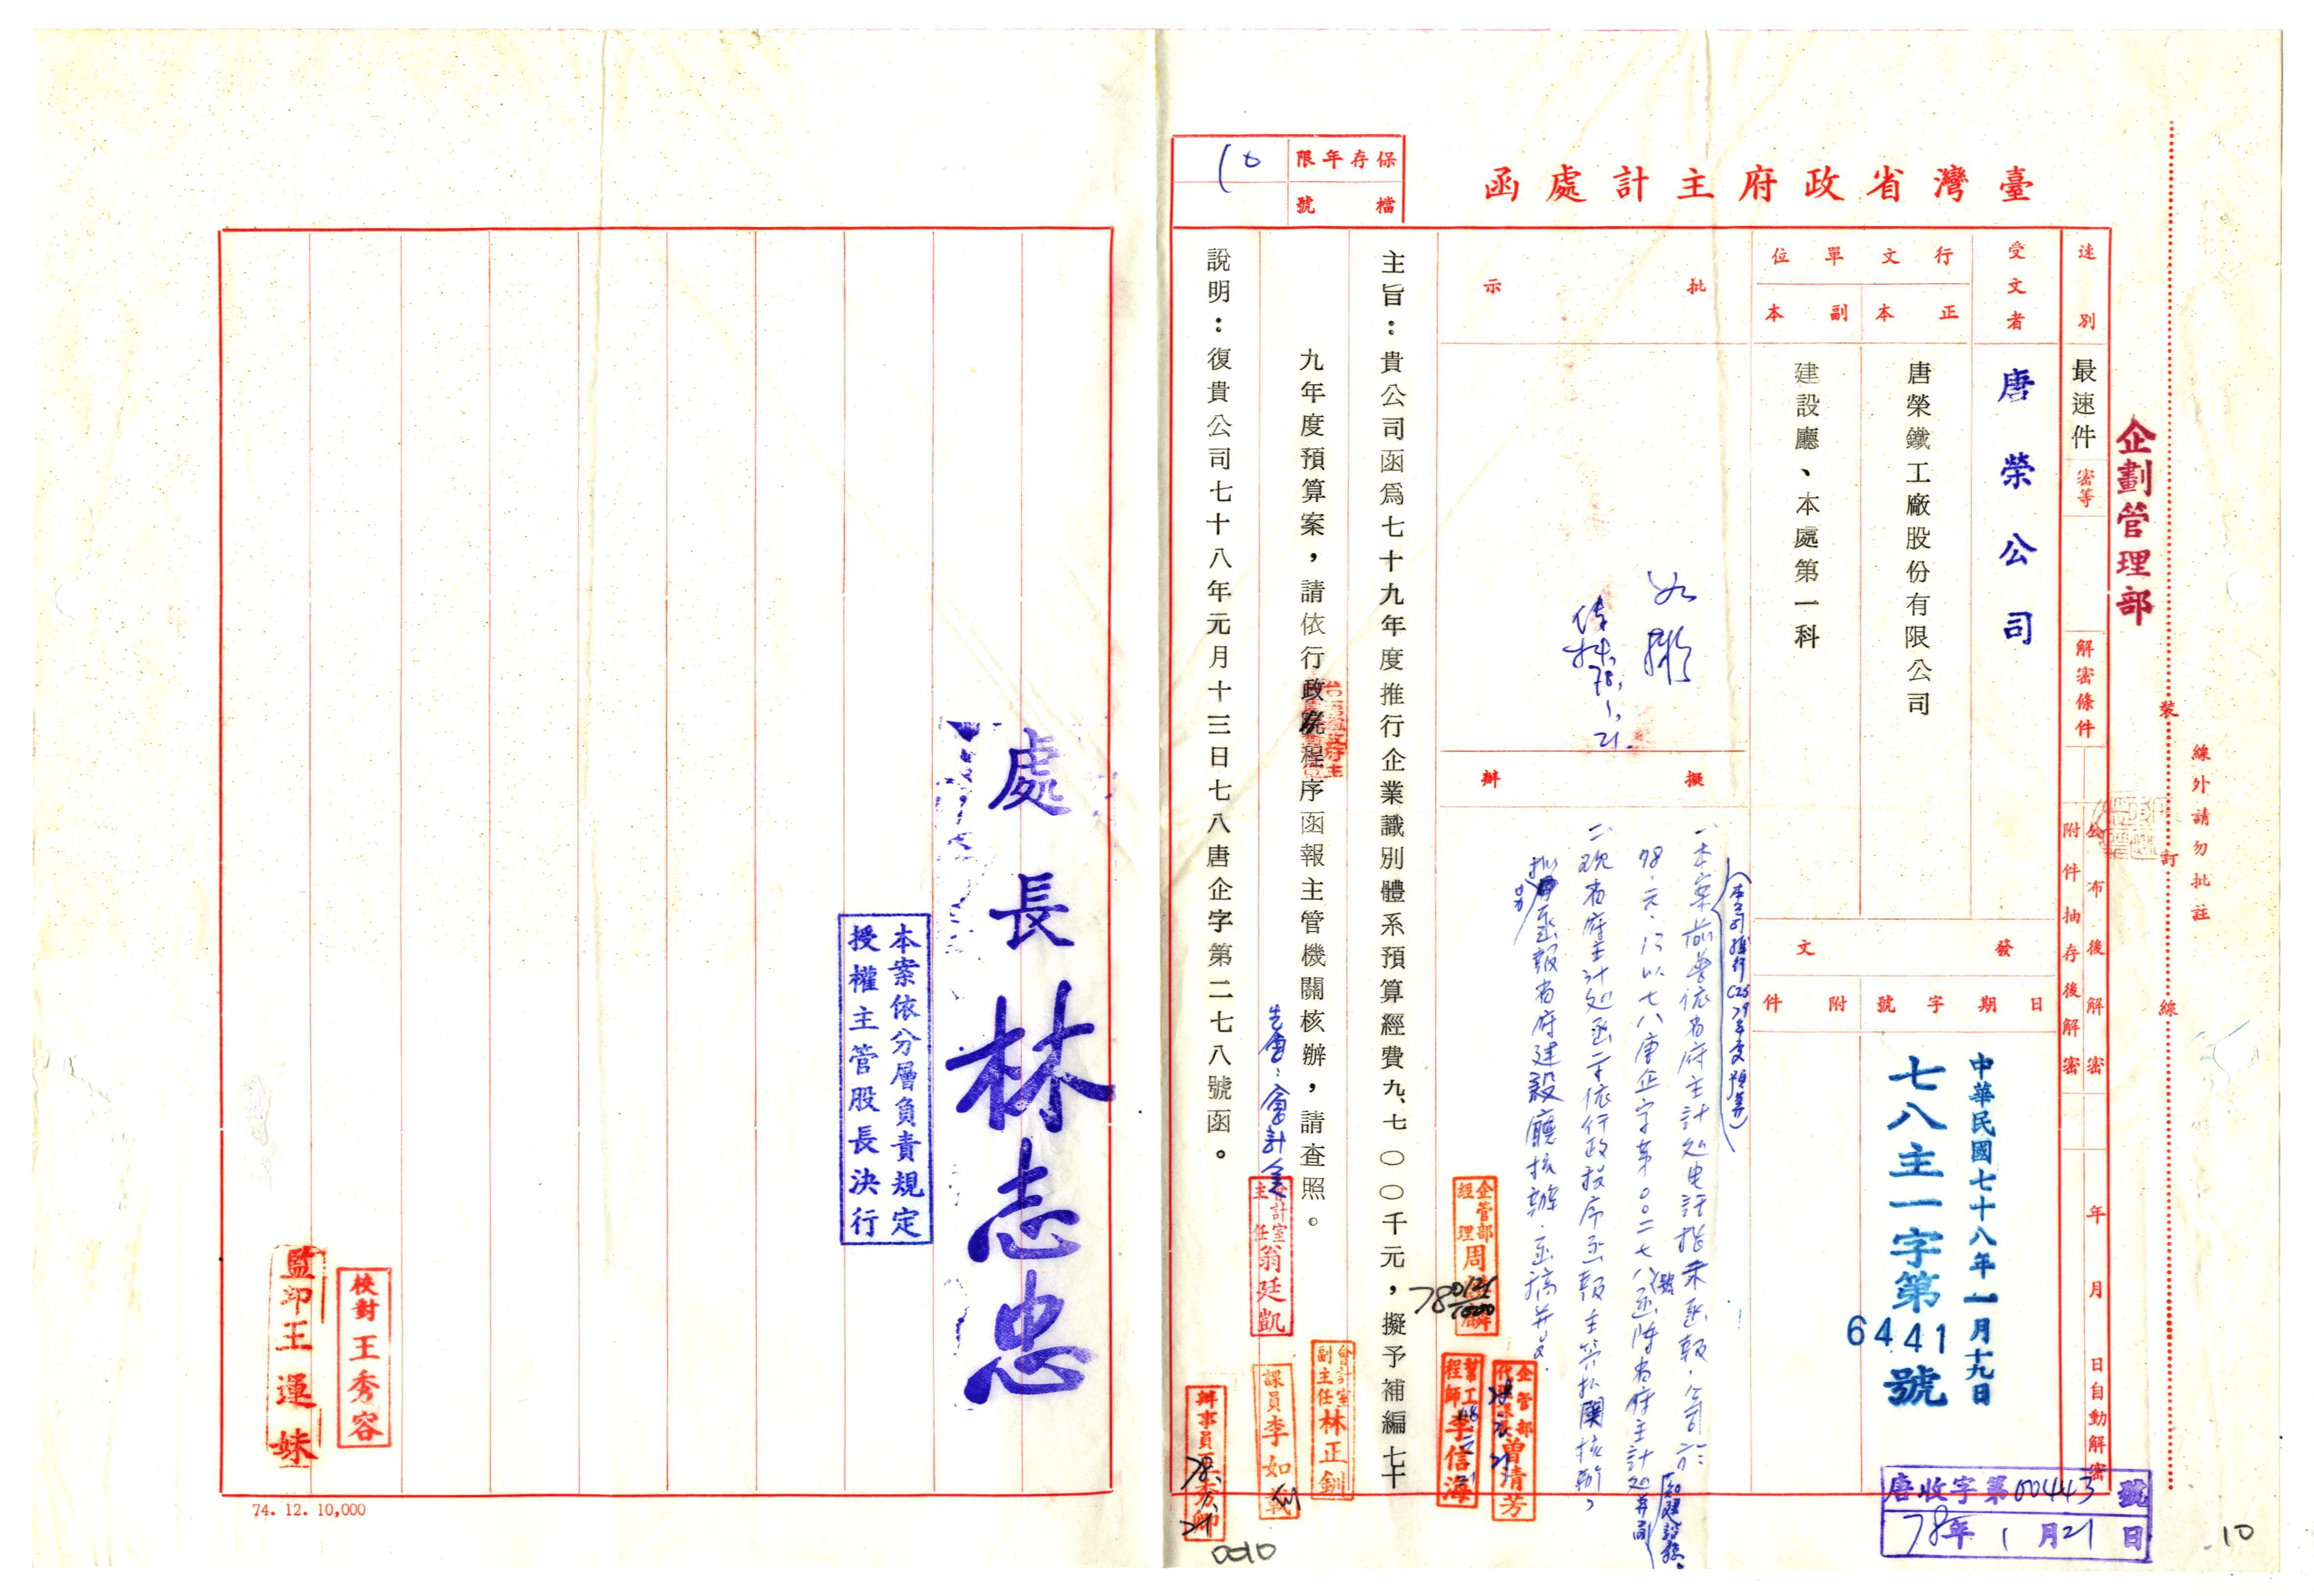 臺灣省政府主計處函
保存年限
10
檔號
線外請勿批註
裝
訂
線
企劃管理部
速別
最速件
密等
解密條件
公布後解密
附件抽存後解密
年月日自動解密
受文者
唐榮公司
行文單位
正本
唐榮鐵工廠股份有限公司
副本
建設廳、本處第一科
發文
日期
中華民國七十八年一月十九日
字號
七八主一字第6441號
附件
批示
如擬
78.1.21.
擬辦
(本公司推行CIS79年度預算)
一、本案前曾依省府主計處電話指示函報,公司於
78.元.13以七八唐企字第00二七八號函陳省府主計處并副
知建設廳。
二、現省府主計處函示依行政程序函報主管機關核辦,
擬函報省府建設廳核辦.函稿并呈.
主旨:貴公司函為七十九年度推行企業識別體系預算經費九、七〇〇千元,擬予補編七十
九年度預算案,請依行政程序函報主管機關核辦,請查照。
先會:會計室
說明:復貴公司七十八年元月十三日七八唐企字第二七八號函。
企管部經理周
780121
1000
企管部
曾清芳
李信海
會計室主任翁廷凱
會計室副主任林正釧
課員李如義
辦事員
78.1.21
0010
唐收字第00443號
78年1月21日
10
處長林志忠
本案依分層負責規定
授權主管股長決行
校對王秀容
監印王運妹
74.12.10,000